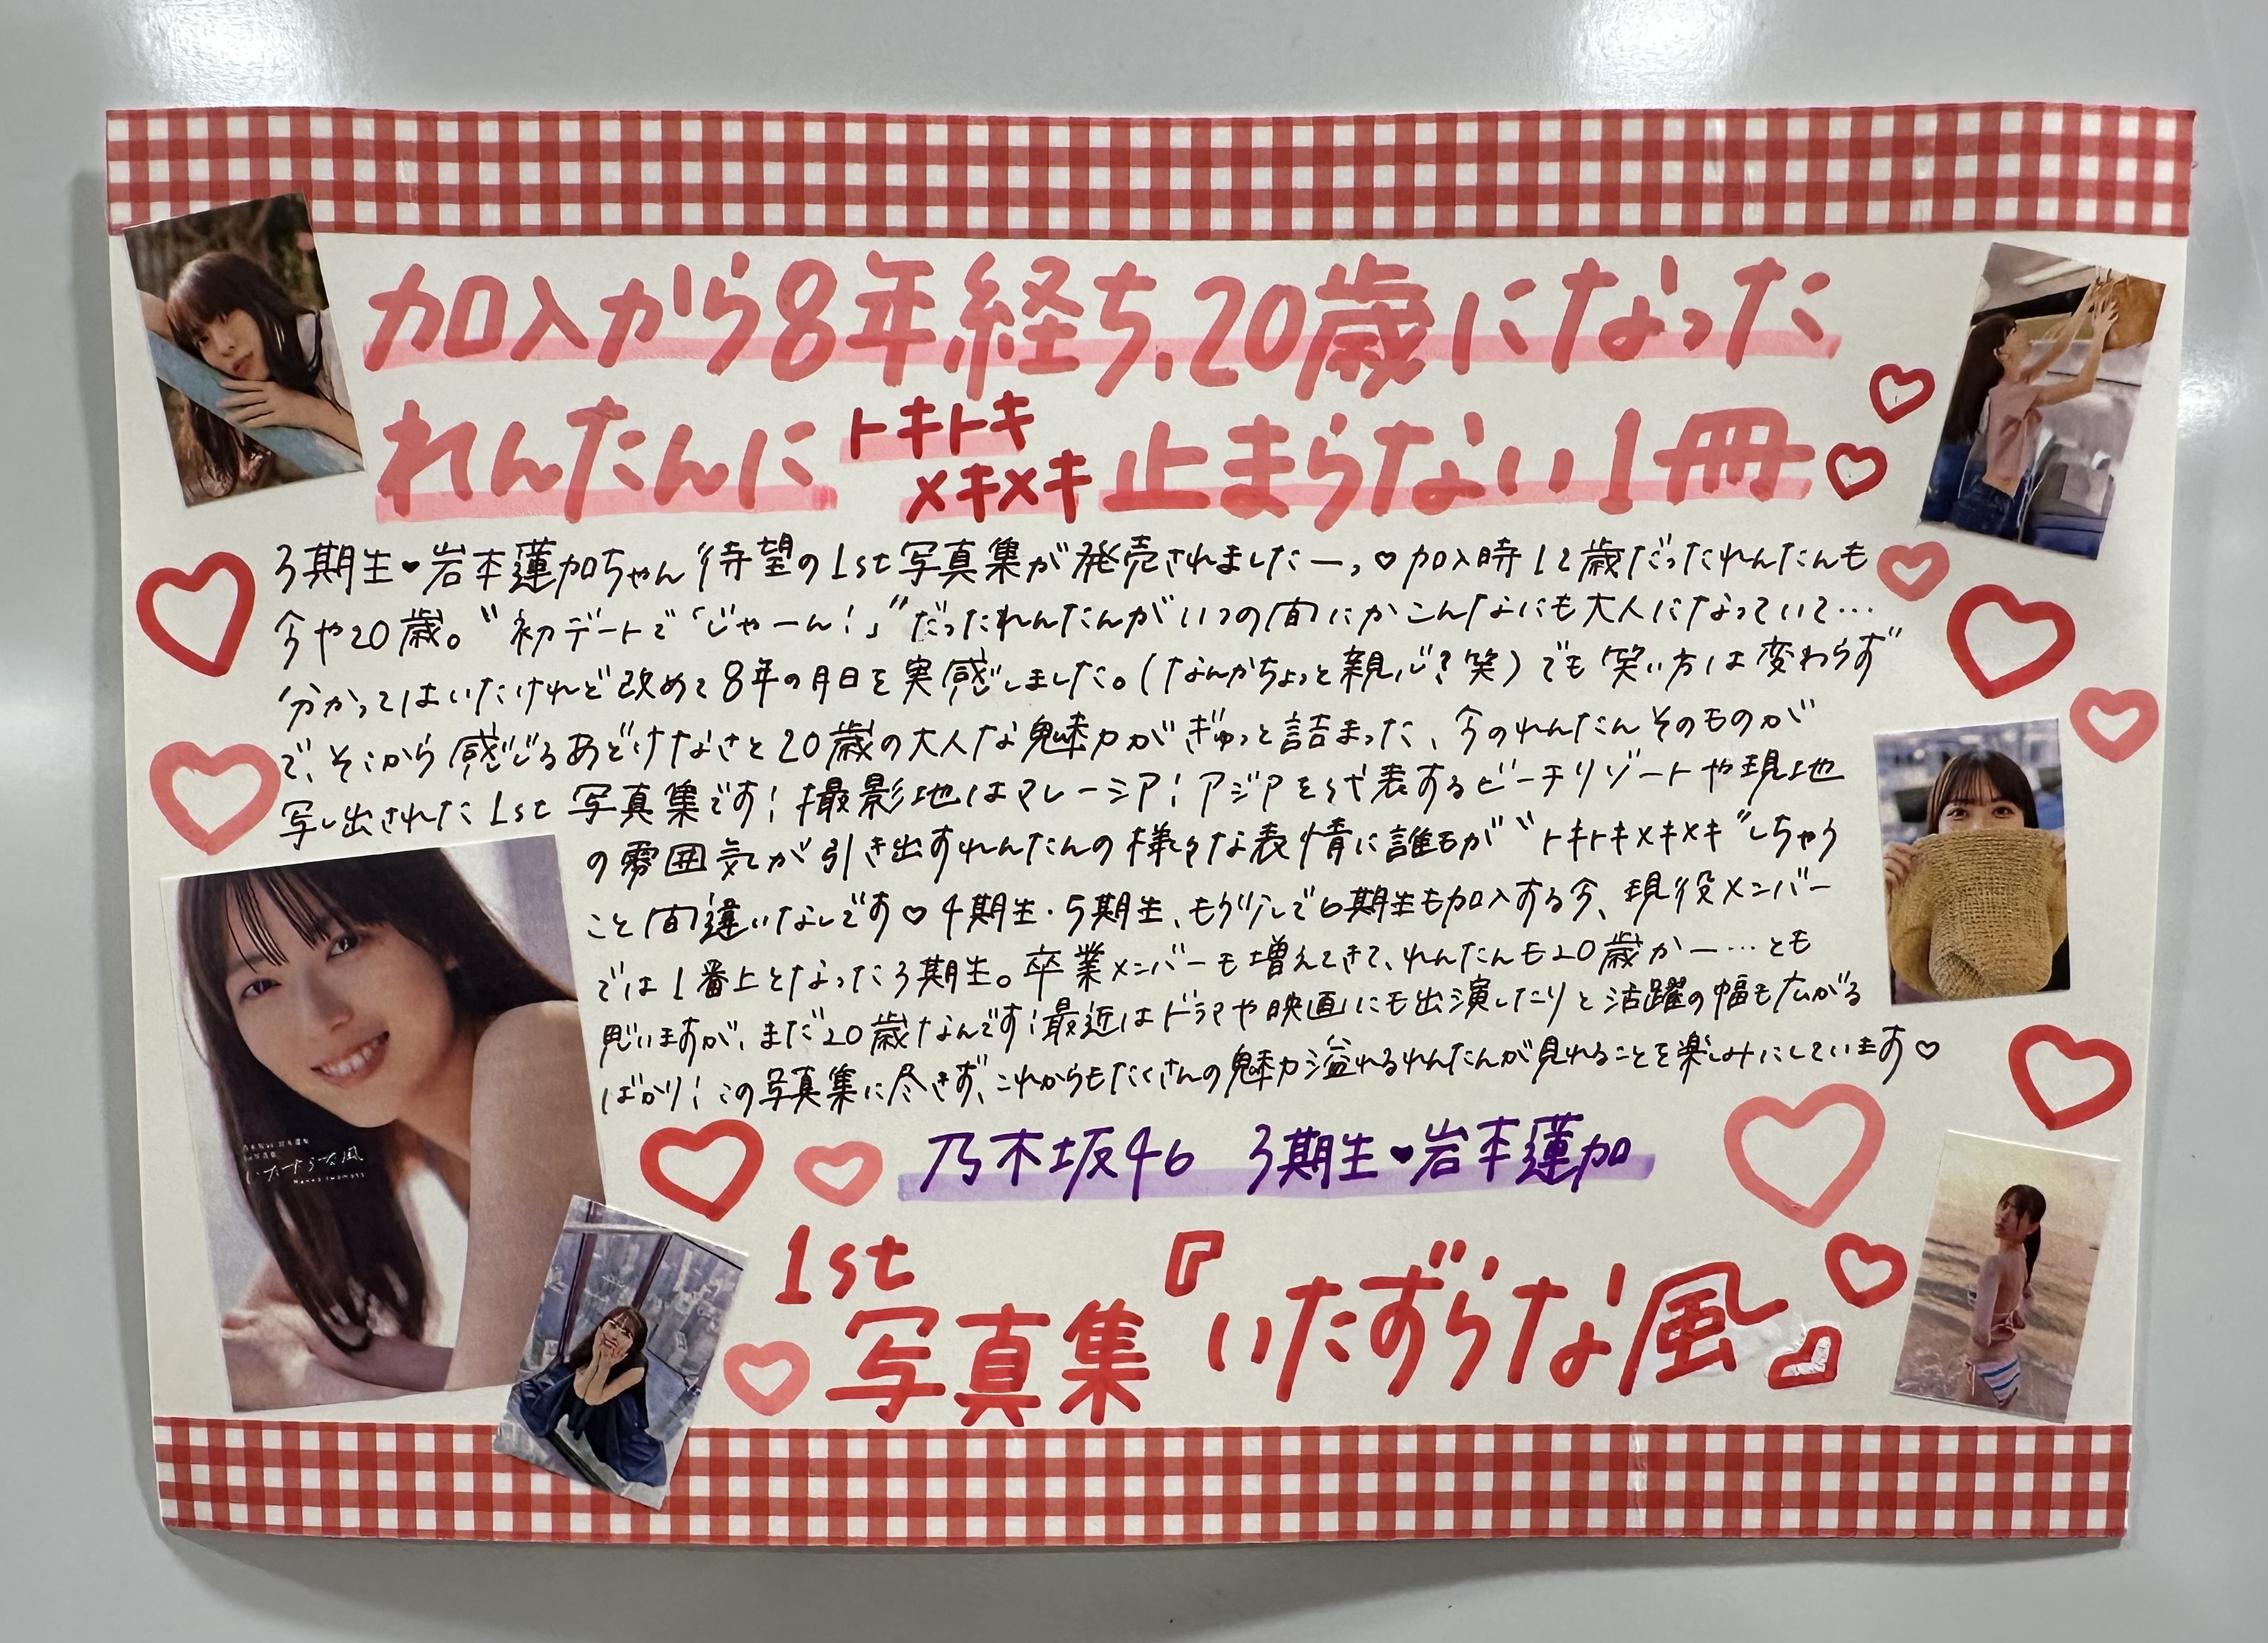 加入から8年経ち、20歳になった
れんたんにトキトキメキメキ止まらない1冊
3期生♥岩本蓮加ちゃん待望の1st写真集が発売されましたーっ♡加入時12歳だったれんたんも
今や20歳。〝初デートで「じゃーん!」〟だったれんたんがいつの間にかこんなにも大人になっていて…
分かってはいたけれど改めて8年の月日を実感しました。(なんかちょっと親心?笑)でも笑い方は変わらず
で、そこから感じるあどけなさと20歳の大人な魅力がぎゅっと詰まった、今のれんたんそのものが
写し出された1st写真集です!撮影地はマレーシア!アジアを代表するビーチリゾートや現地
の雰囲気が引き出すれんたんの様々な表情に誰もが〝トキトキメキメキ〟しちゃう
こと間違いなしです♡4期生・5期生、もう少しで6期生も加入する今、現役メンバー
では1番上となった3期生。卒業メンバーも増えてきて、れんたんも20歳かー…とも
思いますが、まだ20歳なんです!最近はドラマや映画にも出演したりと活躍の幅も広がる
ばかり!この写真集に尽きず、これからもたくさんの魅力溢れるれんたんが見れることを楽しみにしています♡
いたずらな風
乃木坂46 3期生♥岩本蓮加
1st
写真集『いたずらな風』